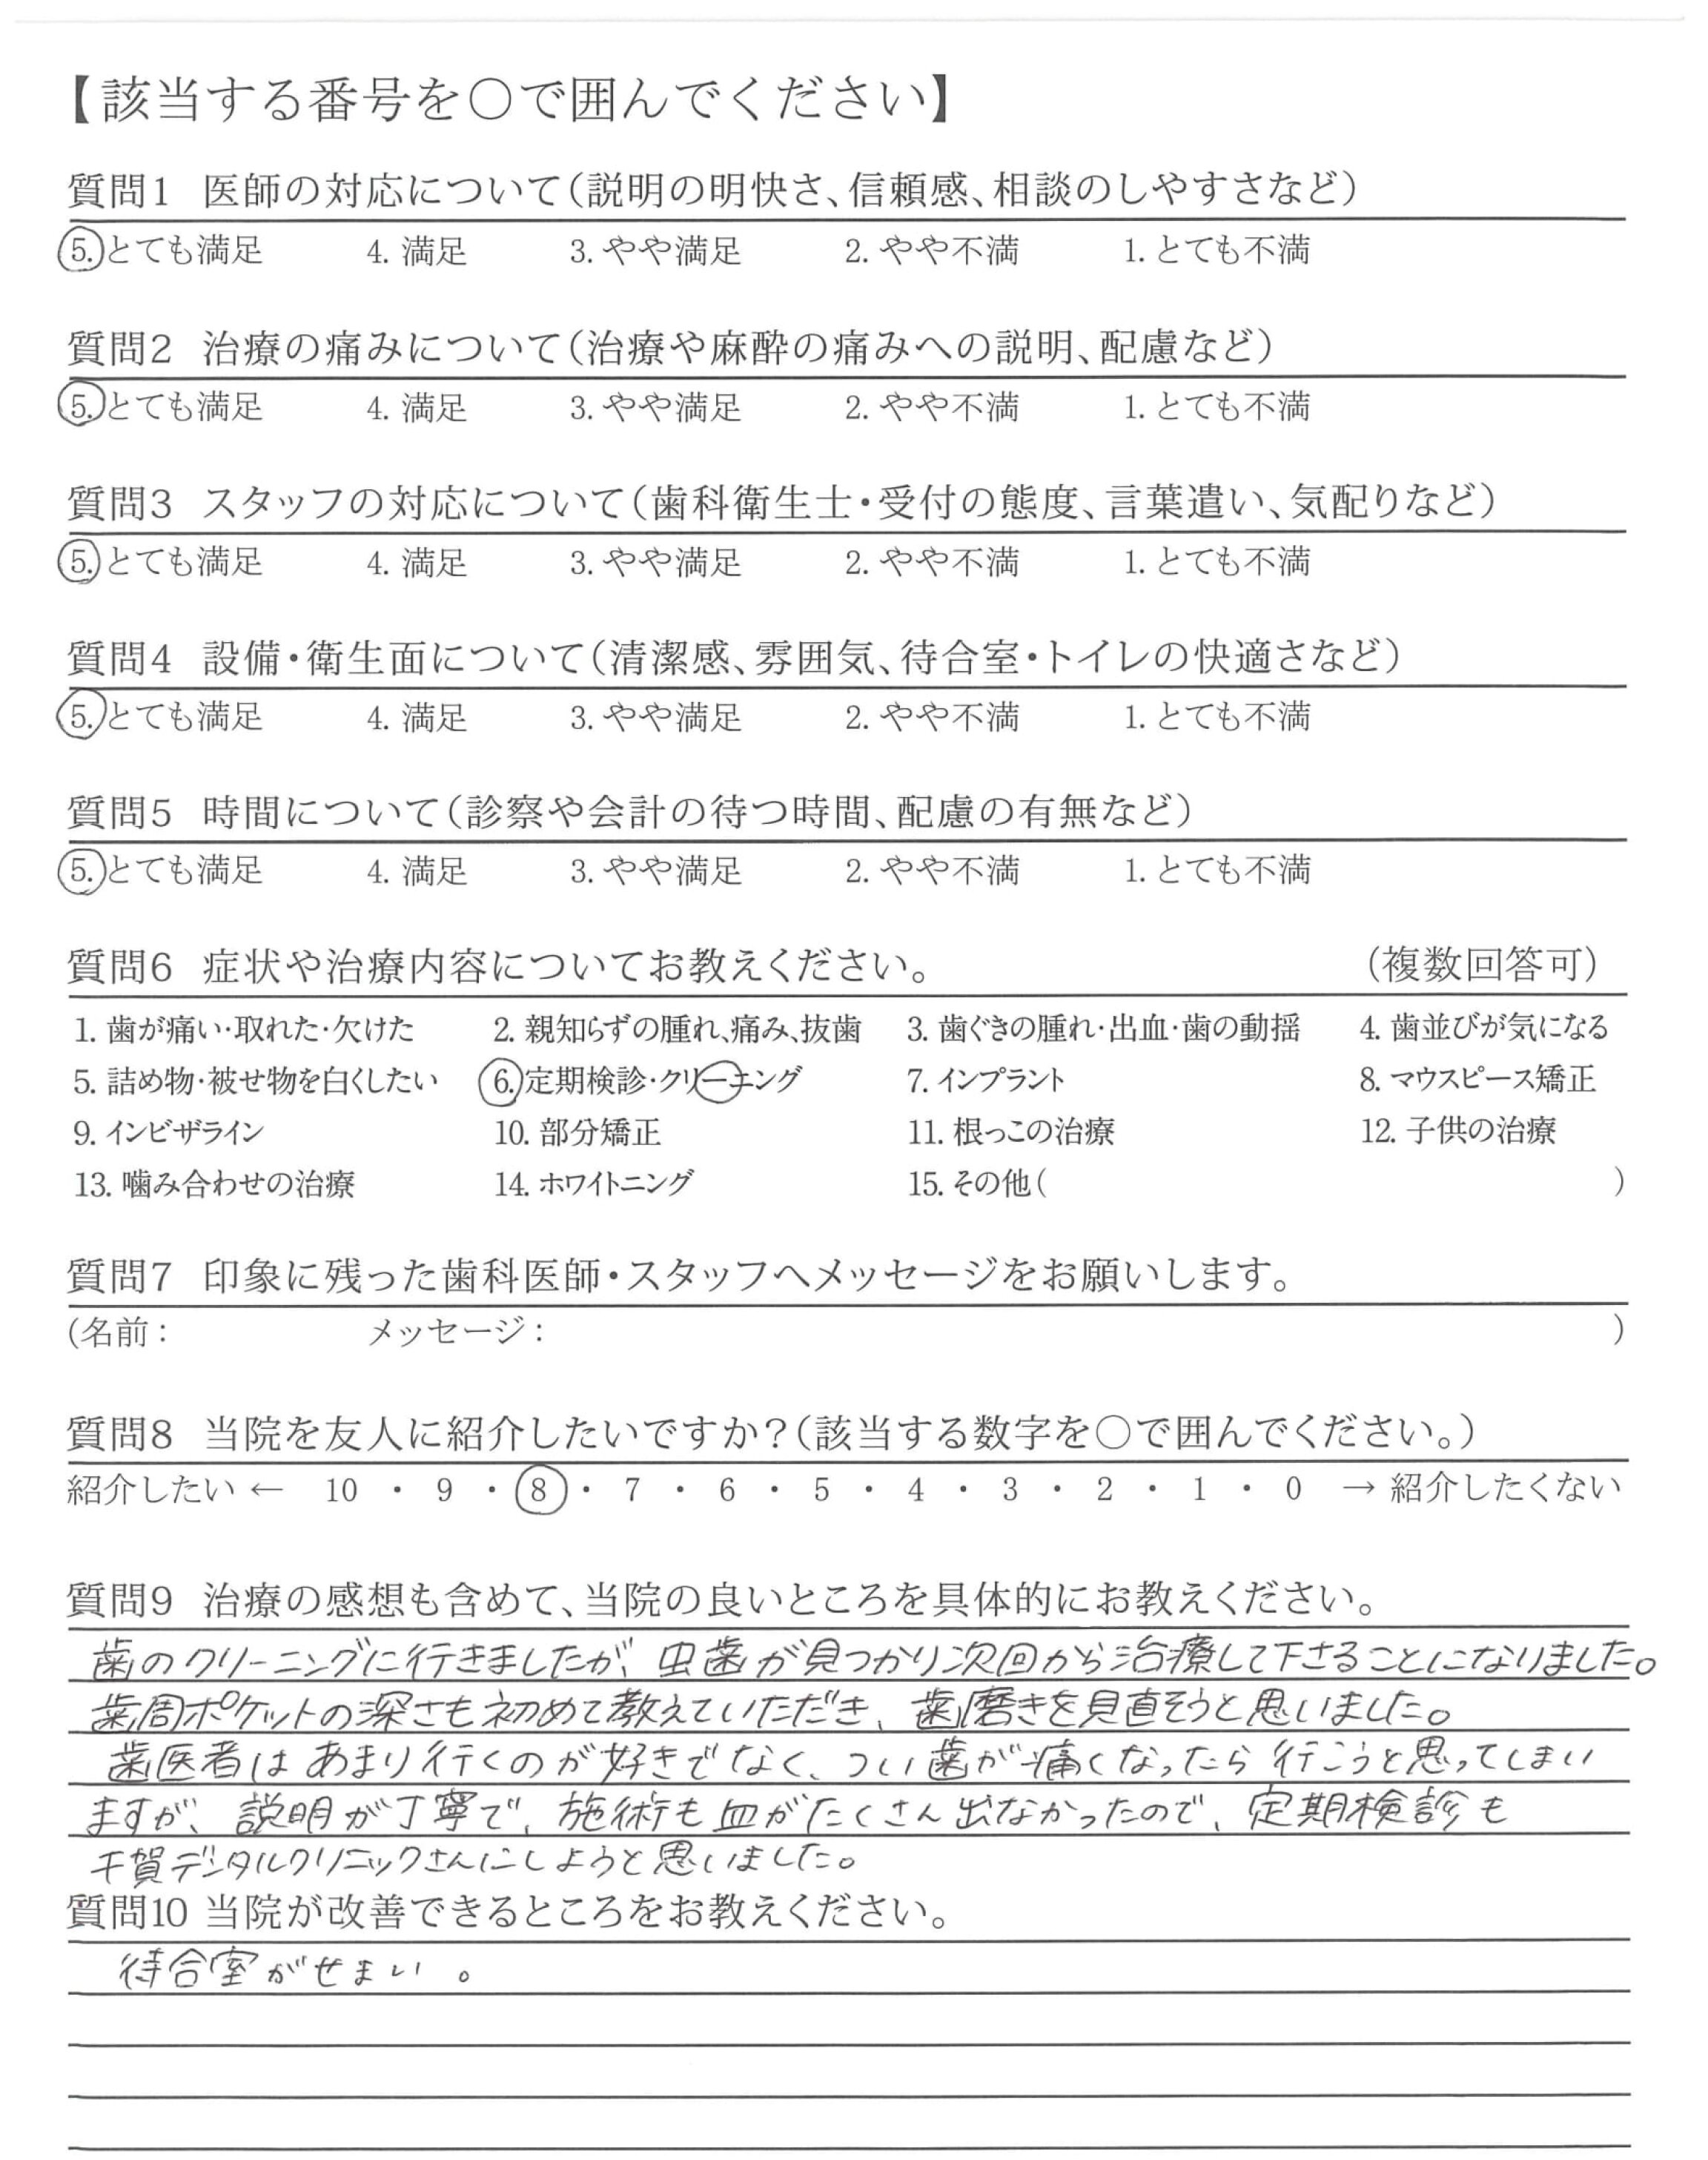 【該当する番号を○で囲んでください】
質問1 医師の対応について（説明の明快さ、信頼感、相談のしやすさなど）
5. とても満足 4. 満足 3. やや満足 2. やや不満 1. とても不満
質問2 治療の痛みについて（治療や麻酔の痛みへの説明、配慮など）
5. とても満足 4. 満足 3. やや満足 2. やや不満 1. とても不満
質問3 スタッフの対応について（歯科衛生士・受付の態度、言葉遣い、気配りなど）
5. とても満足 4. 満足 3. やや満足 2. やや不満 1. とても不満
質問4 設備・衛生面について（清潔感、雰囲気、待合室・トイレの快適さなど）
5. とても満足 4. 満足 3. やや満足 2. やや不満 1. とても不満
質問5 時間について（診察や会計の待つ時間、配慮の有無など）
5. とても満足 4. 満足 3. やや満足 2. やや不満 1. とても不満
質問6 症状や治療内容についてお教えください。 （複数回答可）
1. 歯が痛い・取れた・欠けた 2. 親知らずの腫れ、痛み、抜歯 3. 歯ぐきの腫れ・出血・歯の動揺 4. 歯並びが気になる
5. 詰め物・被せ物を白くしたい 6. 定期検診・クリーニング 7. インプラント 8. マウスピース矯正
9. インビザライン 10. 部分矯正 11. 根っこの治療 12. 子供の治療
13. 噛み合わせの治療 14. ホワイトニング 15. その他（ ）
質問7 印象に残った歯科医師・スタッフへメッセージをお願いします。
（名前： メッセージ： ）
質問8 当院を友人に紹介したいですか？（該当する数字を○で囲んでください。）
紹介したい ← 10 ・ 9 ・ 8 ・ 7 ・ 6 ・ 5 ・ 4 ・ 3 ・ 2 ・ 1 ・ 0 → 紹介したくない
質問9 治療の感想も含めて、当院の良いところを具体的にお教えください。
歯のクリーニングに行きましたが、虫歯が見つかり次回から治療して下さることになりました。
歯周ポケットの深さも初めて教えていただき、歯磨きを見直そうと思いました。
歯医者はあまり行くのが好きでなく、つい歯が痛くなったら行こうと思ってしまい
ますが、説明が丁寧で、施術も血がたくさん出なかったので、定期検診も
千賀デンタルクリニックさんにしようと思いました。
質問10 当院が改善できるところをお教えください。
待合室がせまい。